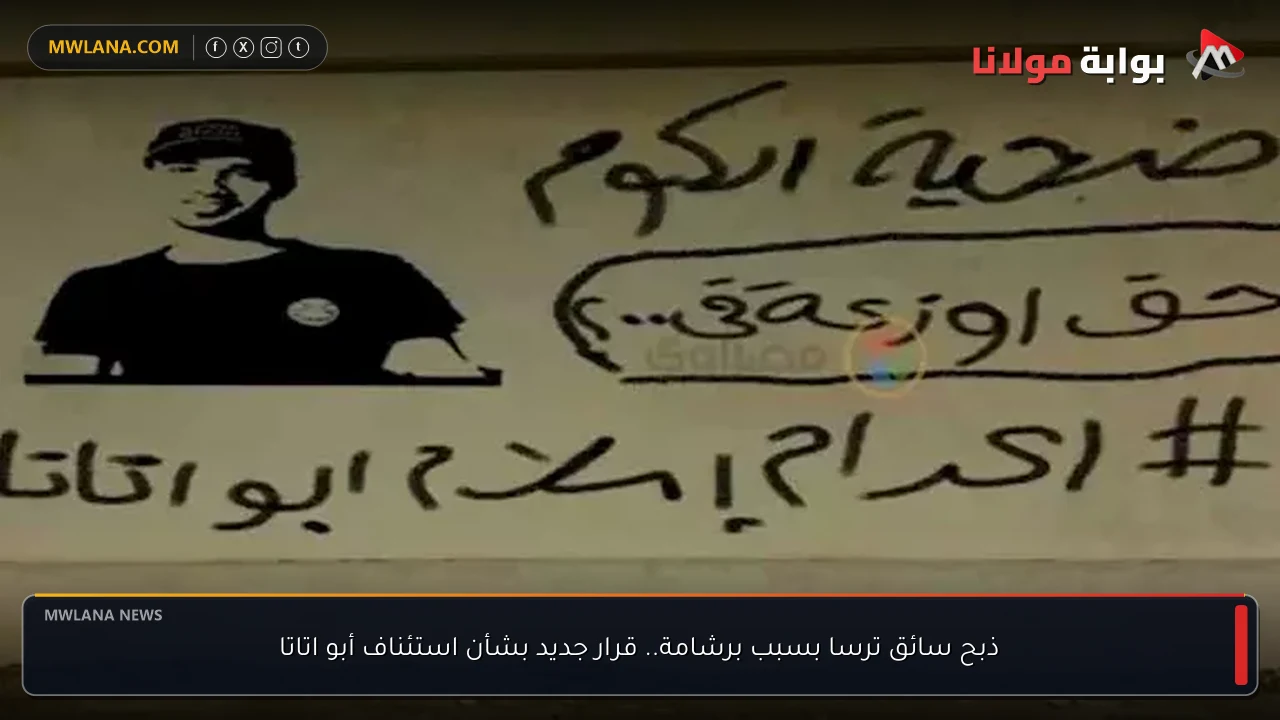 MWLANA.COM
بوابة مولانا
ضحية الكوم
حق اوزعة فى..؟
مصراوى
# اكرام إسلام ابو اتاتا
MWLANA NEWS
ذبح سائق ترسا بسبب برشامة.. قرار جديد بشأن استئناف أبو اتاتا